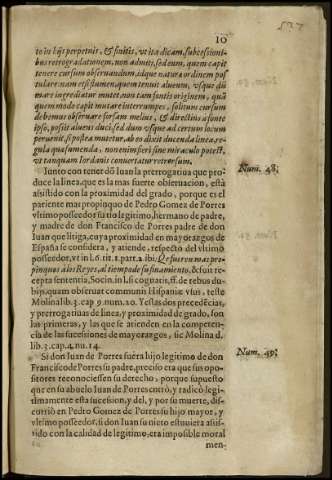 537
10
to in ijs perpetuis, & finitis, vt ita dicam, subcessioni-
bus retrogradationem, non admitti, sed eum, quem capit
tenere cursum obseruandum, idque natura ordinem pos
tulare nam et si flumen, quem tenuit alueum, vsque dũ
mare ingrediatur mutet, non tam fontis originem, quã
quem modo capit mutare interrumpes, solitum cursum
debemus obseruare forsam melius, & directius, à fonte
ipso, posset alueus duci, sed dum vsque ad certum locum
peruenit, si postea mutetur, ab eo dixit ducenda linea, re-
gula quasumenda, non enim fieri sine miraculo potest,
vt tanquam Iordanis conuertatur retrorsum.
Iunto con tener dõ Iuan la prerrogatiua que pro-
Num. 48;
duce la linea, que es la mas fuerte obseruacion, està
assistido con la proximidad del grado, porque es el
pariente mas propinquo de Pedro Gomez de Porres
vltimo posseedor su tio legitimo, hermano de padre,
y madre de don Francisco de Porres padre de don
Iuan que litiga, cuya proximidad en mayorazgos de
España se considera, y atiende, respecto del vltimo
posseedor, vt in l. 6. tit. 1. part. 2. ibi: Que fueren mas pro-
pinquos a los Reyes, al tiempo de su finamiento, & fuit re-
cepta sententia, Socin. in l. si cognatis, ff. de rebus du-
bijs, quam obseruat communis Hispaniæ vsus, teste
Molina lib. 3. cap. 9. num. 20. Y estas dos precedẽcias,
y prerrogatiuas de linea, y proximidad de grado, son
las primeras, y las que se atienden en la competen-
cia de las sucessiones de mayorazgos, sic Molina d.
lib. 3. cap. 4. nu. 14.
Si don Iuan de Porres fuera hijo legitimo de don
Num. 49;
Francisco de Porres su padre, preciso era que sus opo-
sitores reconociessen su derecho, porque supuesto
que en su abuelo Iuan de Porres entrò, y radicò legi-
timamente esta sucession, y del, y por su muerte, dis-
curriò en Pedro Gomez de Porres su hijo mayor, y
vltimo posseedor, si don Iuan su nieto estuuiera assis-
tido con la calidad de legitimo, era imposible moral
men-